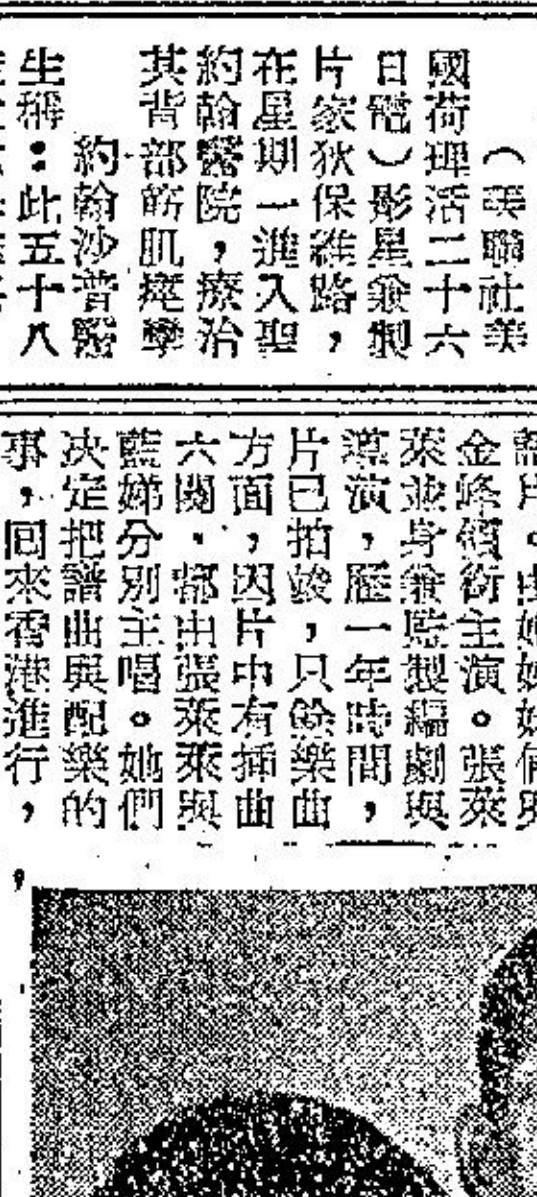 （美聯社美
國荷理活二十六
日電）影星兼製
片家狄保維路，
在星期一進入聖
約翰醫院，療治
其背部筋肌痙攣
約翰沙普醫
生稱：此五十八
片。由她
金峰領銜主演。張萊
萊並身兼監製編劇與
導演，歷一年時間，
片已拍竣，只餘樂曲
方面，因片中有插曲
六闋，都由張萊萊與
藍娣分別主唱。她們
决定把譜曲與配樂的
事，回來香港進行，